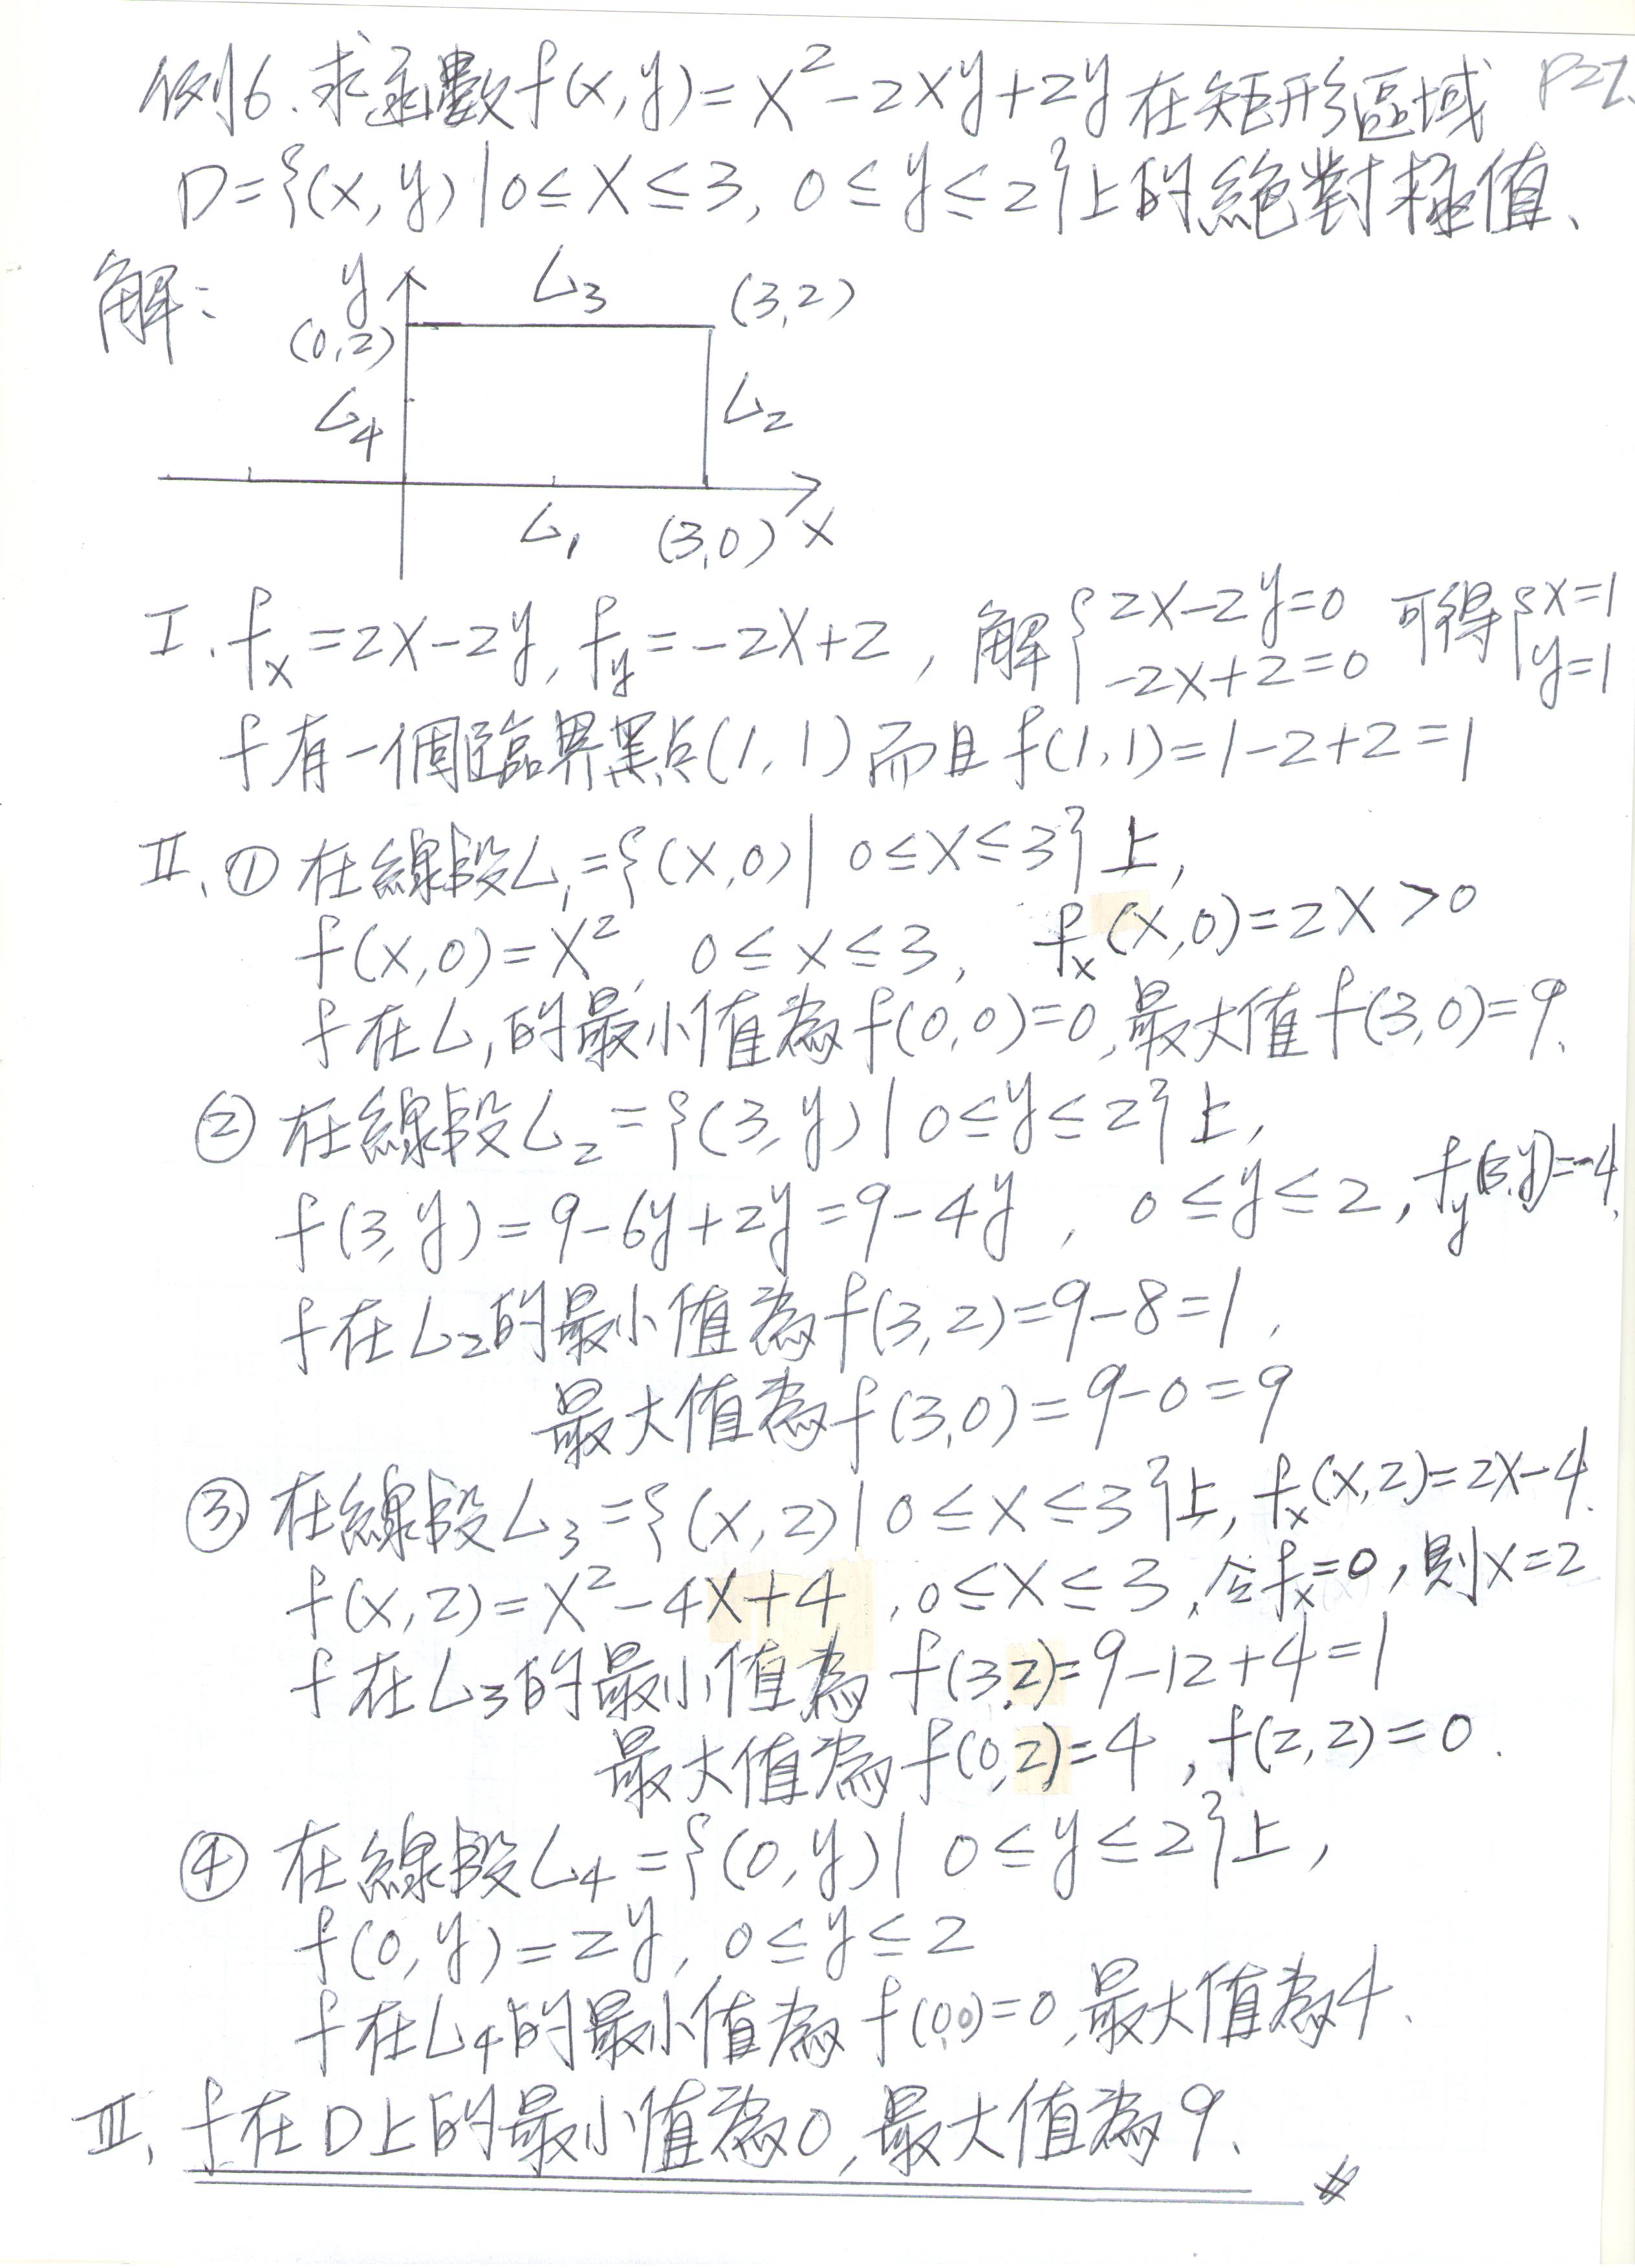 例6.求函數f(x,y)=x²-2xy+2y在矩形區域 P27.
D={(x,y)|0≤x≤3, 0≤y≤2}上的絕對極值、
解:
y L₃ (3,2)
(0,2)
L₄ L₂
L₁ (3,0) x
I. fₓ=2x-2y, f_y=-2x+2, 解{2x-2y=0 可得{x=1
-2x+2=0 y=1
f有一個臨界點(1,1)而且f(1,1)=1-2+2=1
II、① 在線段L₁={(x,0)| 0≤x≤3}上,
f(x,0)=x², 0≤x≤3, fₓ(x,0)=2x>0
f在L₁的最小值為f(0,0)=0,最大值f(3,0)=9、
② 在線段L₂={(3,y)|0≤y≤2}上,
f(3,y)=9-6y+2y=9-4y, 0≤y≤2, f_y(3,y)=-4.
f在L₂的最小值為f(3,2)=9-8=1,
最大值為f(3,0)=9-0=9
③ 在線段L₃={(x,2)|0≤x≤3}上, fₓ(x,2)=2x-4.
f(x,2)=x²-4x+4, 0≤x≤3, 令fₓ=0, 則x=2
f在L₃的最小值為f(3,2)=9-12+4=1
最大值為f(0,2)=4, f(2,2)=0.
④ 在線段L₄={(0,y)| 0≤y≤2}上,
f(0,y)=2y, 0≤y≤2
f在L₄的最小值為f(0,0)=0,最大值為4、
III、f在D上的最小值為0,最大值為9、